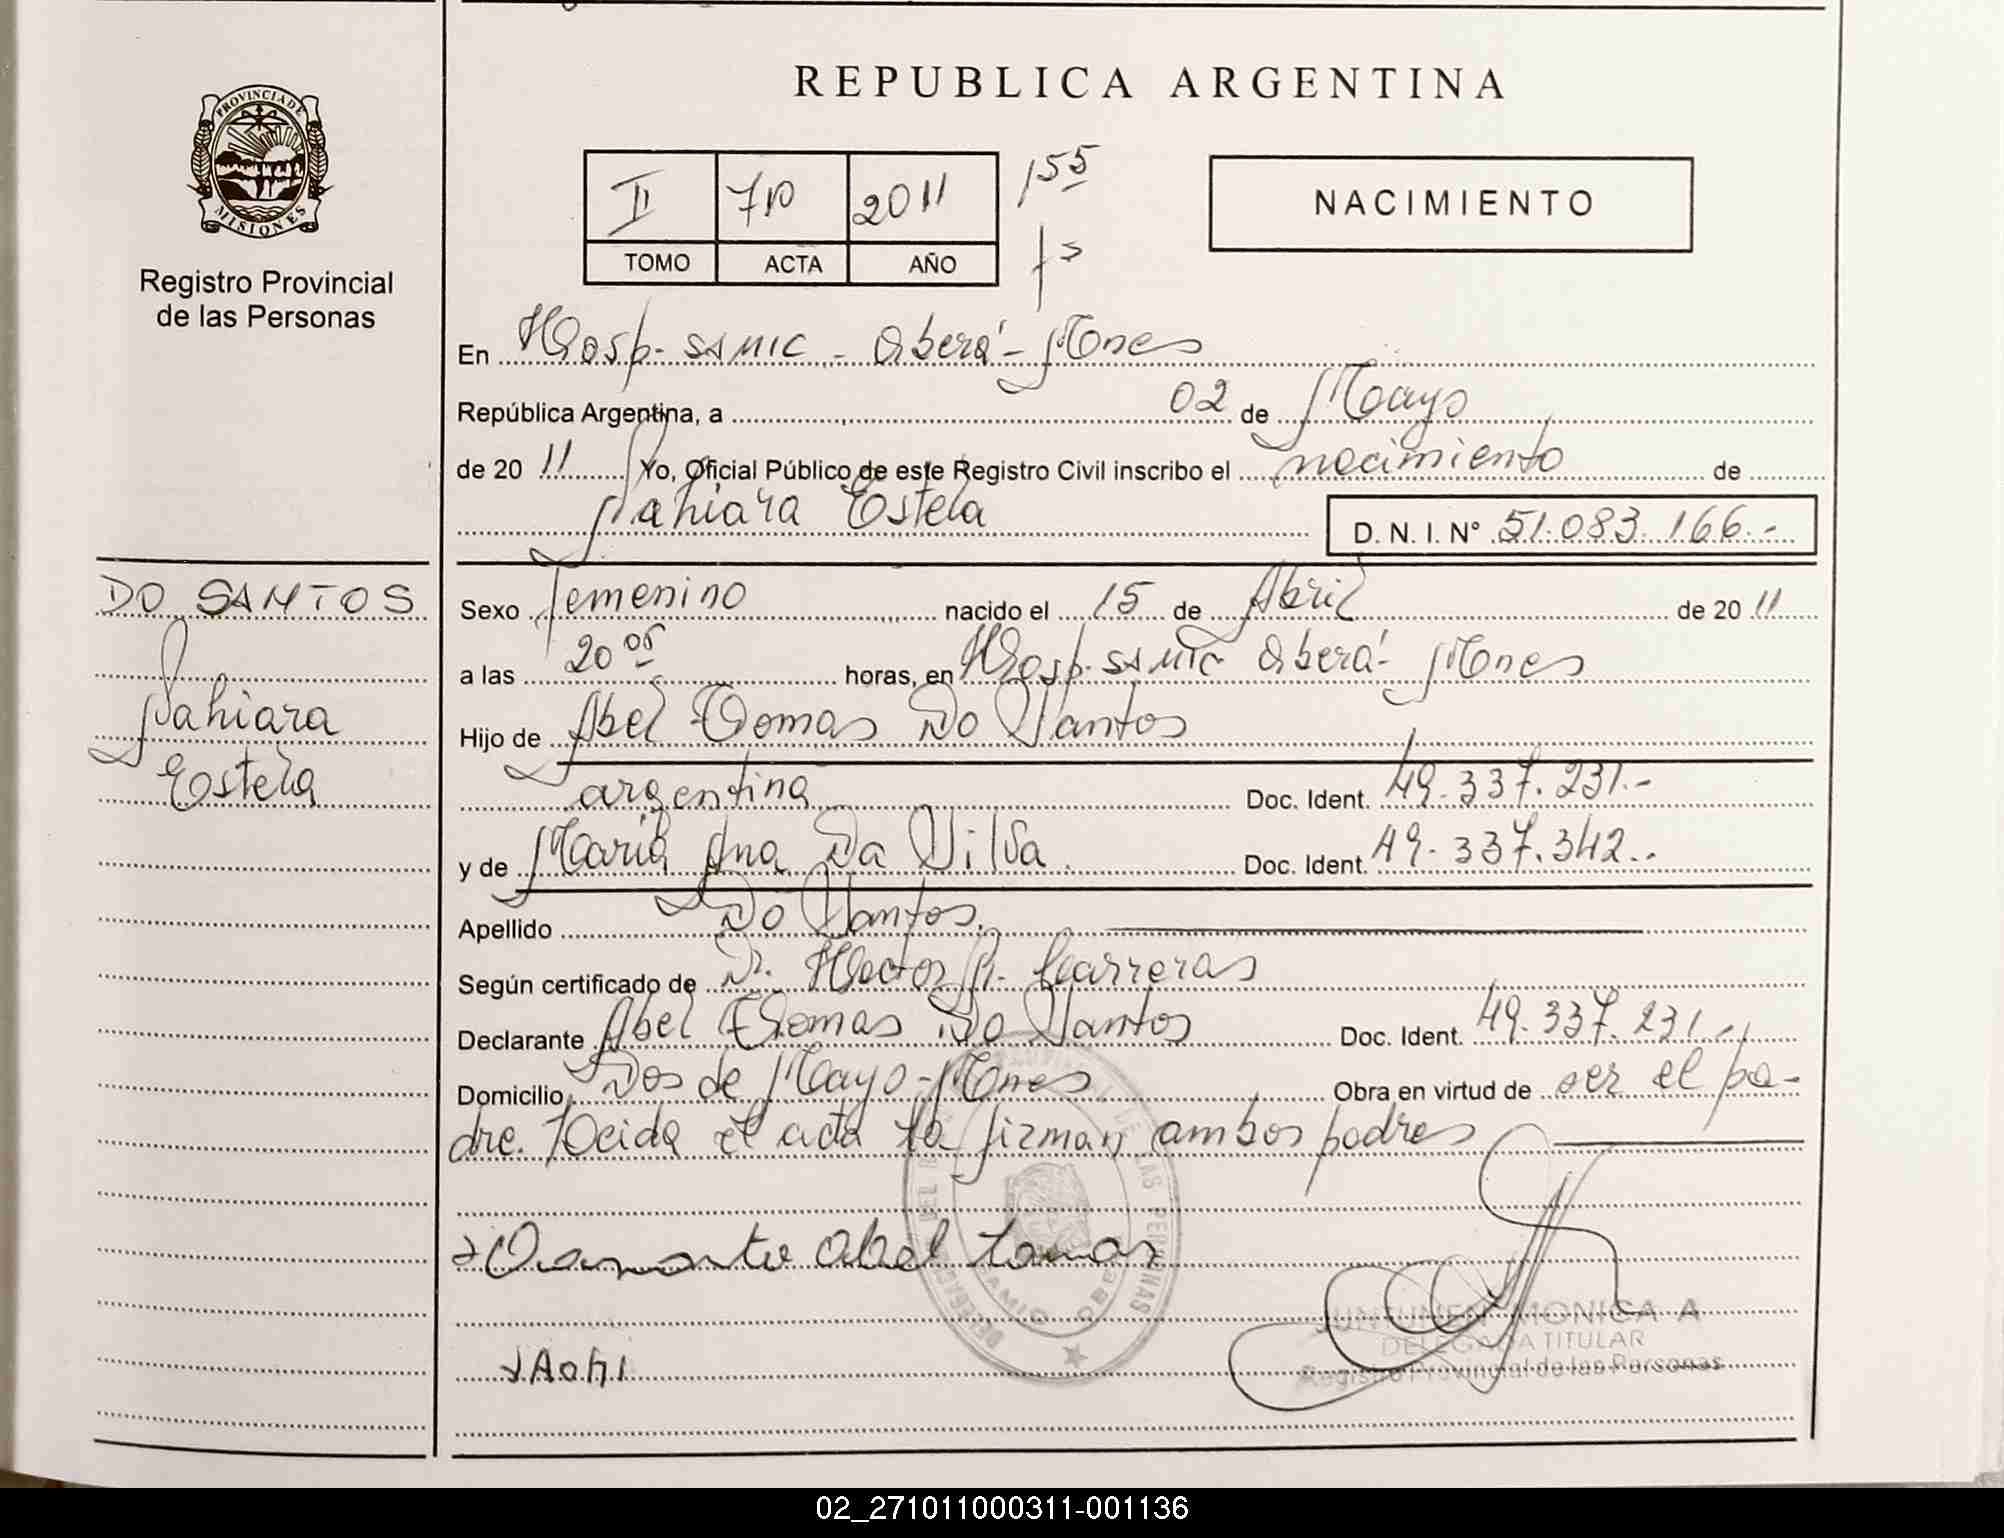 REPUBLICA ARGENTINA
PROVINCIA DE
MISIONES
Registro Provincial
de las Personas
II 710 2011 155
TOMO ACTA AÑO
NACIMIENTO
En Hosp. SAMIC - Oberá - Mnes
República Argentina, a 02 de Mayo
de 20 11 Yo, Oficial Público de este Registro Civil inscribo el nacimiento de
Pahiara Estela D. N. I. N° 51.083.166.-
DO SANTOS
Pahiara
Estela
Sexo femenino nacido el 15 de Abril de 20 11
a las 20 05 horas, en Hosp. SAMIC Oberá - Mnes
Hijo de Abel Tomas Do Santos
argentina Doc. Ident. 49.337.231.-
y de Maria Ana Da Silva Doc. Ident. 49.337.342.-
Apellido Do Santos.
Según certificado de Dr. Hector R. Carreras
Declarante Abel Tomas Do Santos Doc. Ident. 49.337.231.-
Domicilio Dos de Mayo - Mnes Obra en virtud de ser el pa-
dre. Leida el acta la firman ambos padres
abel tomas
JUNTUNEN MONICA A
DELEGADA TITULAR
Registro Provincial de las Personas
02_271011000311-001136